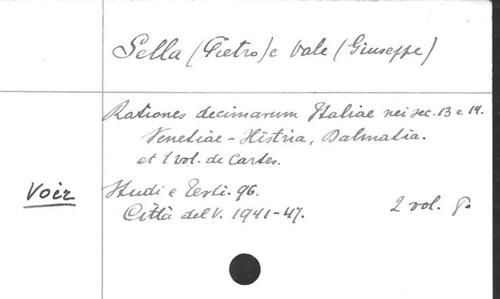 Sella (Pietro) e Vale (Giuseppe)
Rationes decimarum Italiae nei sec. 13 e 14.
Venetiae - Histria, Dalmatia.
et 1 vol. de Cartes.
Voir Studi e Testi. 96.
Città del V. 1941-47. 2 vol.